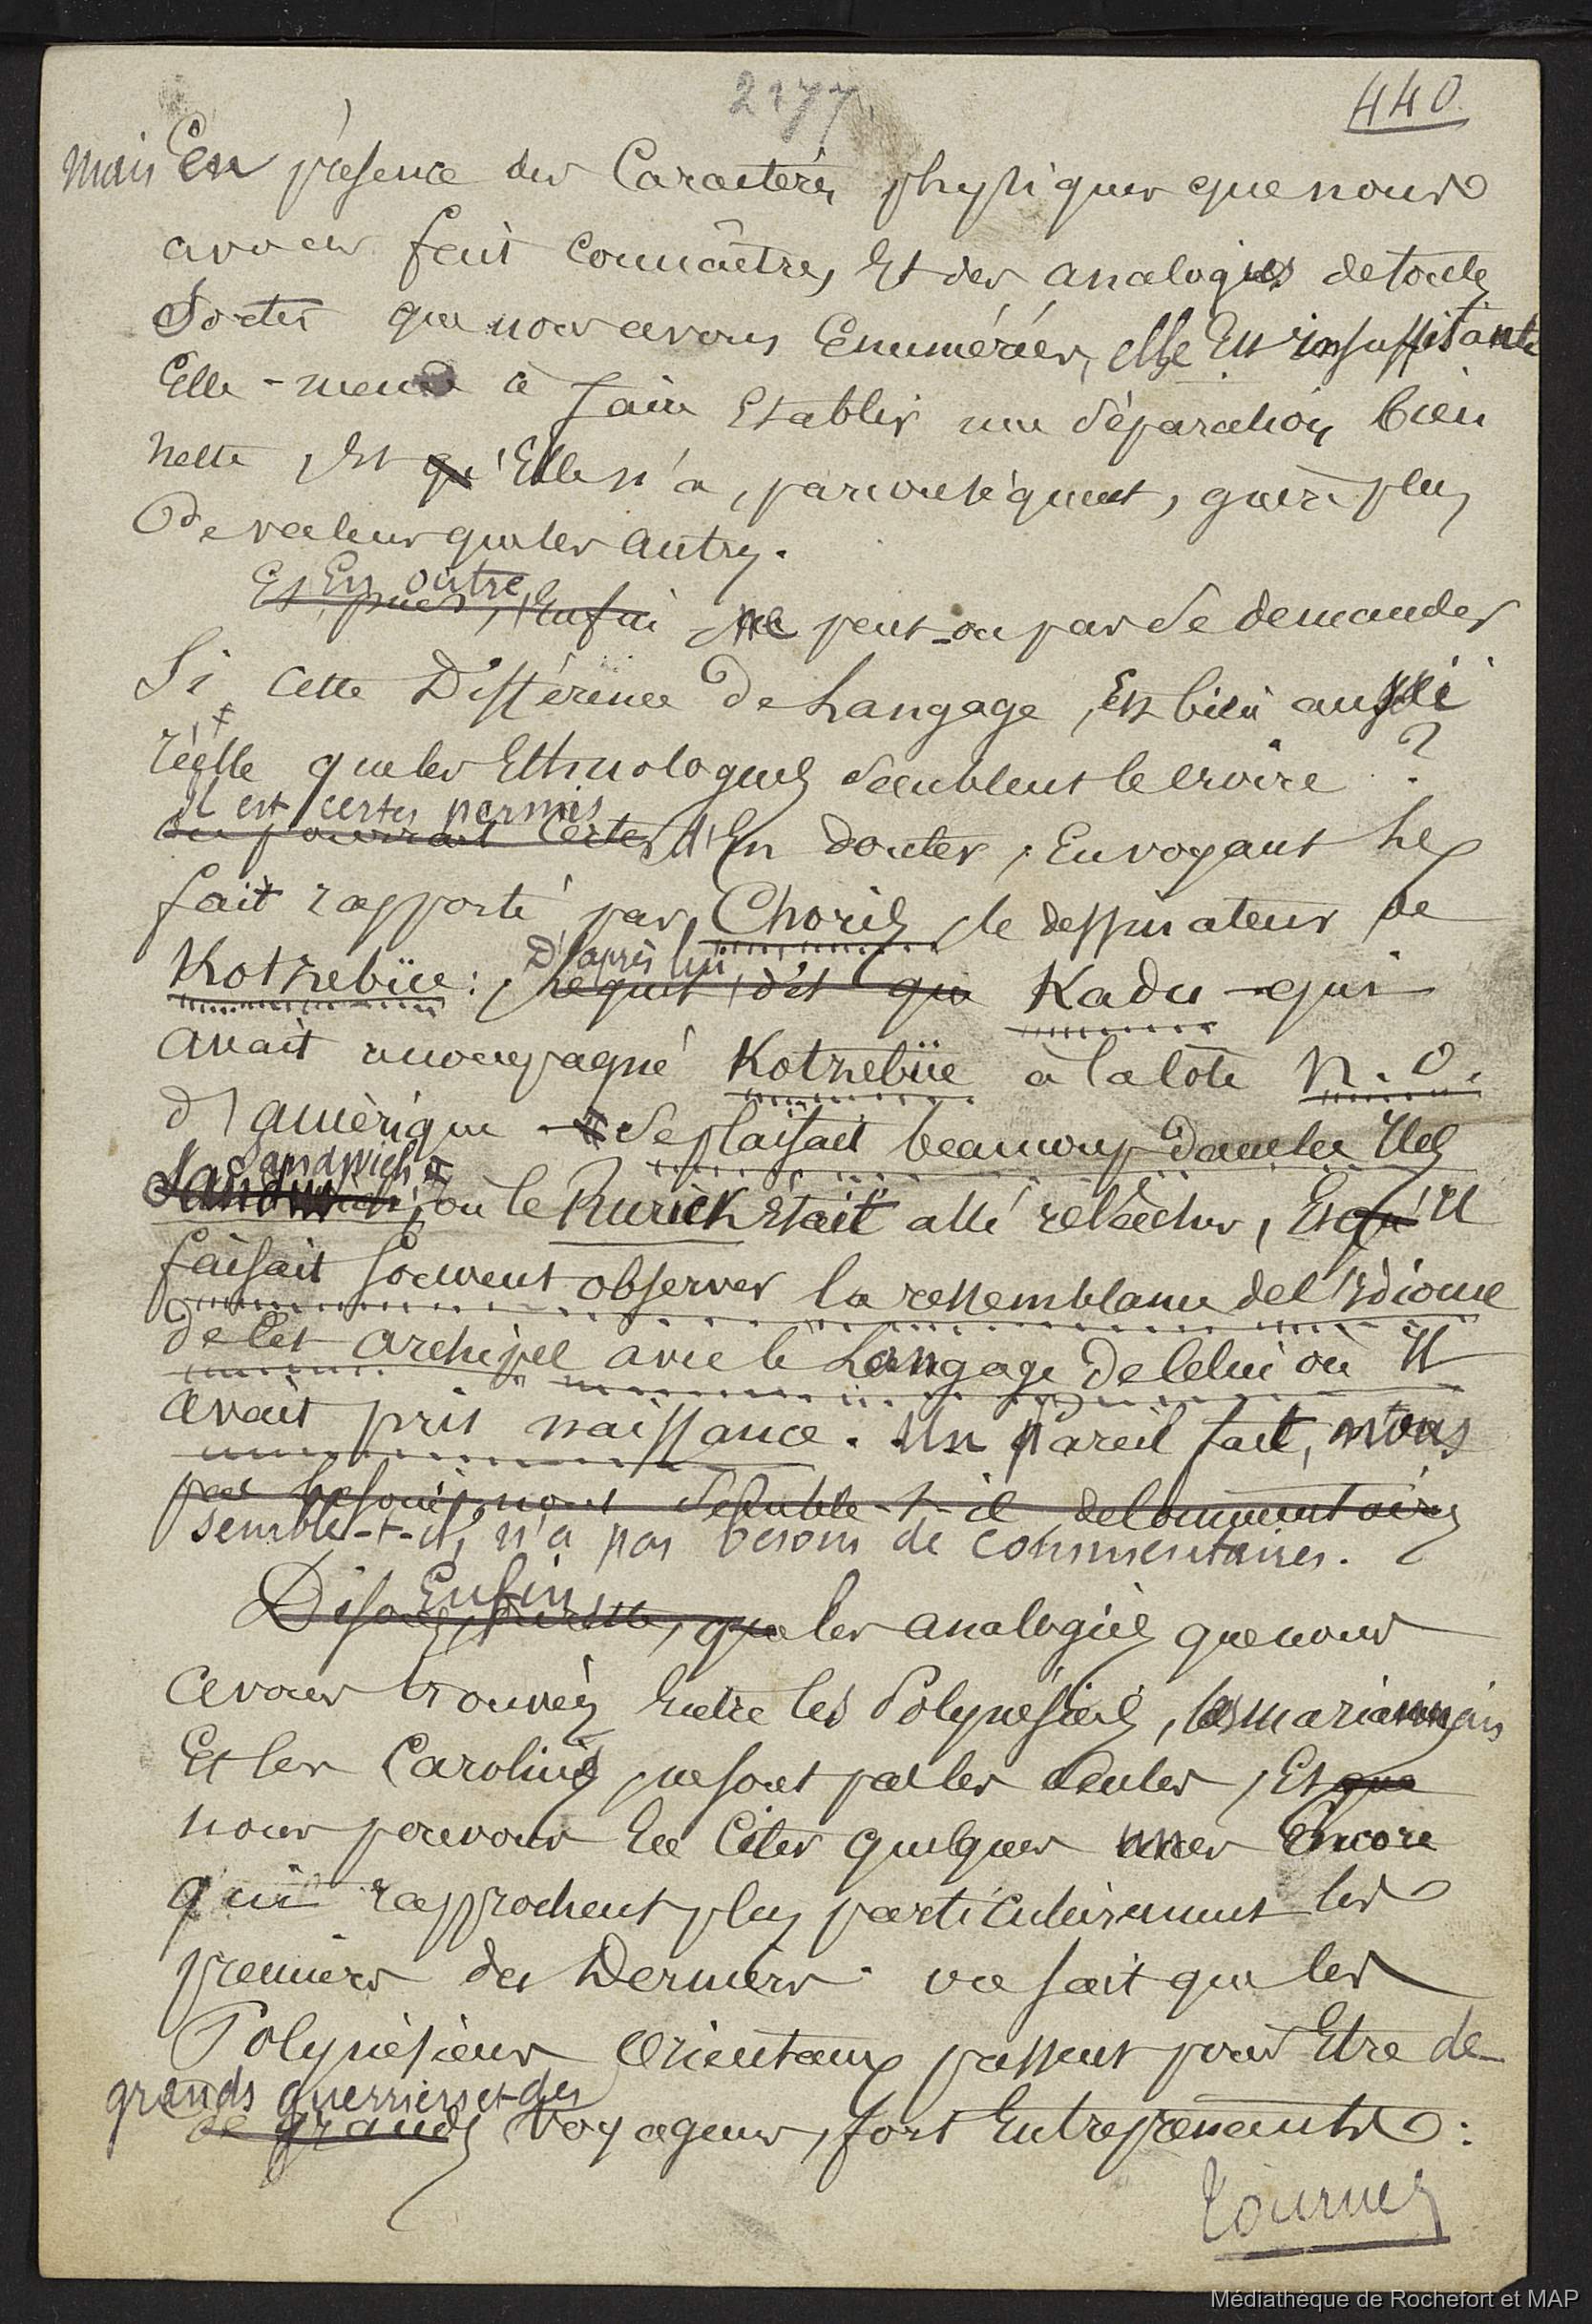 2177
440
Mais En présence des Caractères physiques que nous
avons fait connaître, Et des analogies de toutes
Sortes que nous avons Enumérées, elle Est insuffisante
Elle-même à faire Etablir une séparation bien
nette, Et qu'Elle n'a, par conséquent, guère plus
De valeur que les autres.
En outre
Et puis, Enfin ne peut-on pas se demander
Si cette Différence De Langage, Est bien aussi
réelle que les Ethnologues semblent le croire ?
il est certes permis
on pourrait certes d'En douter, En voyant le
fait rapporté par Choris, le dessinateur de
D'après lui
Kotzebüe : lequel dit que Kadu - qui
avait accompagné Kotzebüe à la Côte N. O.
d'amérique - se plaisait beaucoup dans les Iles
Sandwich
Sandwich, où le Rurick Etait allé relâcher, Et qu'Il
faisait souvent observer la ressemblance de l'Idiome
de Cet archipel avec le Langage De Celui où Il
avait pris naissance. Un pareil fait, nous
pas besoin, nous semble-t-il de Commentaires
semble-t-il, n'a pas besoin de commentaires.
Enfin
Disons, que les analogies que nous
avons trouvées Entre les Polynésiens, les mariannais
Et les Carolins, ne sont pas les seules, Et que
nous pouvons En Citer quelques unes Encore
qui rapprochent plus particulièrement les
premiers des Derniers. on sait que les
Polynésiens Orientaux passent pour Etre de
grands guerriers et des
de grands Voyageurs, fort Entreprenants :
Tournez
Médiathèque de Rochefort et MAP